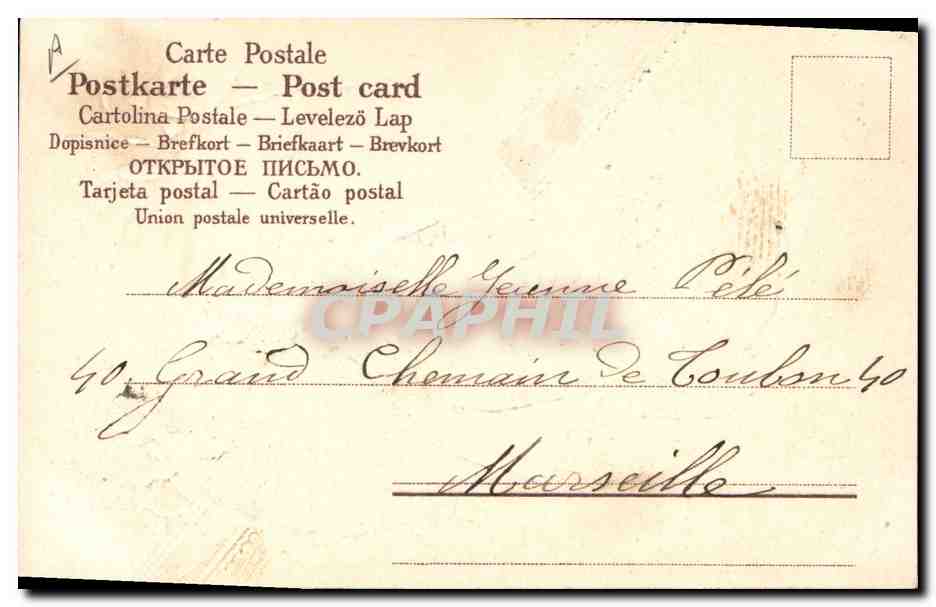 Carte Postale
Postkarte — Post card
Cartolina Postale — Levelezö Lap
Dopisnice — Brefkort — Briefkaart — Brevkort
ОТКРЫТОЕ ПИСЬМО.
Tarjeta postal — Cartão postal
Union postale universelle.
Mademoiselle Jeanne Pélé
CPAPHIL
40. Grand Chemain de Toulon 40
Marseille